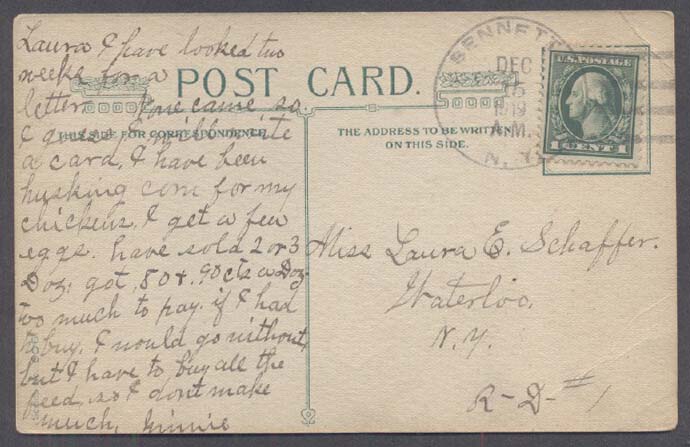 Laura I have looked two
weeks for a
letter. None came so
I guess I will write
a card. I have been
husking corn for my
chickens. I get a few
eggs. have sold 2 or 3
Doz. got .80 & .90 cts a Doz.
too much to pay. if I had
to buy. I would go without,
but I have to buy all the
feed, so I dont make
much, Minnie
POST CARD.
THIS SIDE FOR CORRESPONDENCE
THE ADDRESS TO BE WRITTEN
ON THIS SIDE.
BENNETT
DEC
15
1919
A.M.
N. Y.
U.S. POSTAGE
1 CENT 1
Miss Laura E. Schaffer.
Waterloo,
N. Y.
R-D-#1